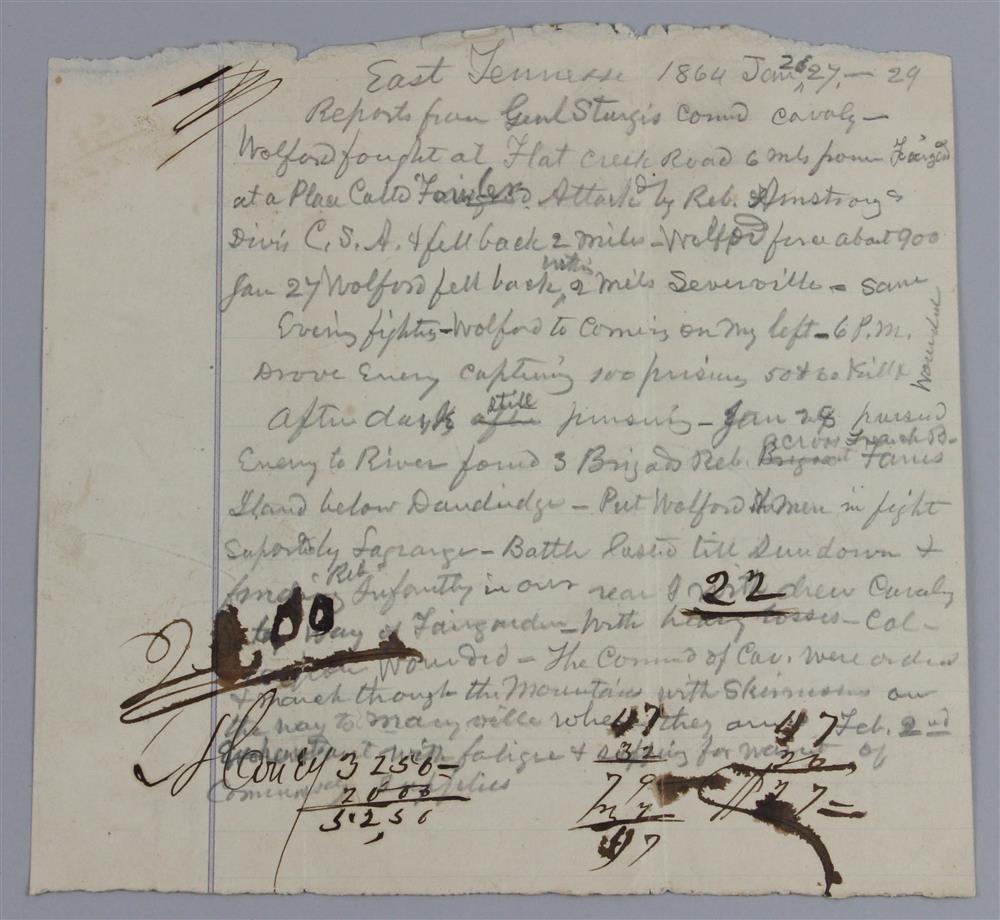 East Tennesse 1864 Jan 26 27, — 29
Reports from Genl Sturgis Comd Cavaly —
Wolford fought at Flat Creek Road 6 mls from
at a Place Calld Fowlers. Attackd by Reb. Armstrongs
Divis C. S. A. & fell back 2 miles — Wolford force about 900
Jan 27 Wolford fell back within 2 mils Severville — Same
Evening fighting — Wolford to Coming on my left — 6 P.M.
Drove Enemy capturing 100 prisiners 50 & 60 Killd Wounded
After dark still pursuing — Jan 28 pursued
Enemy to River found 3 Brigads Reb. across French B-
Fanns
Iland below Dandridge — Put Wolford men in fight
Suported by Lagrange — Battle lasted till Sundown &
finding Reb Infantry in our rear I withdrew Cavaly
22
200
Way of Fairgarden — With heavy losses — Col —
Wounded — The Comnd of Cav. were orderd
& march through the Mountains with Skirmishes on
the way to Maryville where they arrived Feb. 2nd
with fatigue & suffering for want of
Supplies
3250 —
2000
5,250
47
32
79
47
47
77 =